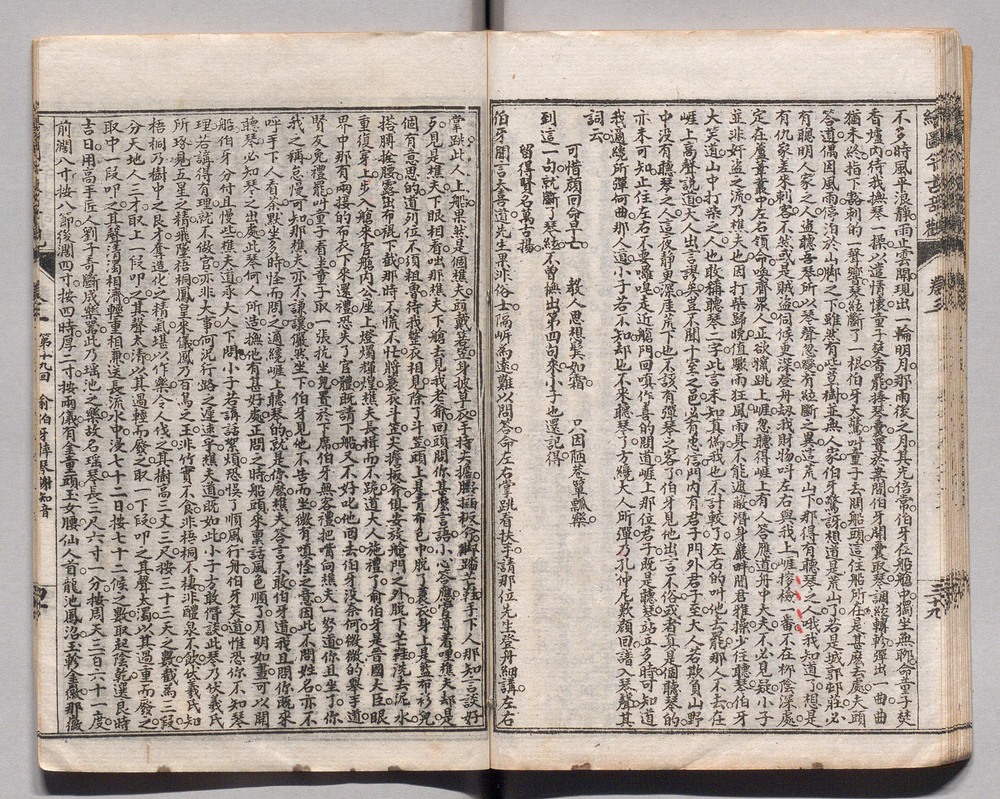 不多時風平浪靜雨止雲開現出一輪明月那雨後之月其光倍常伯牙在船艙中獨坐無聊命童子焚
香爐內待我撫琴一操以遣情懷童子焚香罷捧琴囊置於案間伯牙開囊取琴調絃轉軫彈出一曲曲
猶未終指下豁剌的一聲響琴絃斷了一根伯牙大驚叫童子去問船頭這住船所在是甚麼去處夫頭
答道偶因風雨停泊於山脚之下雖然有些草樹並無人家伯牙驚訝想道是荒山了若是城郭村莊或
有聰明好學之人盜聽吾琴所以琴聲忽變有絃斷之異這荒山下那得有聽琴之人哦我知道了想是
有仇家差來刺客不然或是賊盜伺候更深登舟刼我財物叫左右與我上崖搜檢一番不在柳陰深處
定在蘆葦叢中左右領命喚齊衆人正欲搭跳上崖忽聽得崖上有人答應道舟中大夫不必見疑小子
並非奸盜之流乃樵夫也因打柴歸晚值驟雨狂風雨具不能遮蔽潛身巖畔聞君雅操少住聽琴伯牙
大笑道山中打柴之人也敢稱聽琴二字此言未知真僞我也不計較了左右的叫他去罷那人不去在
崖上高聲說道大人出言謬矣豈不聞十室之邑必有忠信門內有君子門外君子至大人若欺負山野
中沒有聽琴之人這夜靜更深荒崖下也不該有彈琴之客了伯牙見他出言不俗或者真是個聽琴的
亦未可知止住左右不要囉唣走近艙門回嗔作喜的問道崖上那位君子既是聽琴站立多時可知道
我適纔所彈何曲那人道小子若不知却也不來聽琴了方纔大人所彈乃孔仲尼嘆顏回譜入琴聲其
詞云
可惜顏回命早亡 教人思想鬢如霜 只因陋巷簞瓢樂
到這一句就斷了琴絃不曾撫出第四句來小子也還記得
留得賢名萬古揚
伯牙聞言大喜道先生果非俗士隔崖窵遠難以問答命左右掌跳看扶手請那位先生登舟細講左右
掌跳此人上船果然是個樵夫頭戴箬笠身披草衣手持尖擔腰插板斧脚踏芒鞋手下人那知言談好
歹見是樵夫下眼相看咄那樵夫下艙去見我老爺叩頭問你甚麼言語小心答應官尊着哩樵夫却是
個有意思的道列位不須粗魯待我整衣相見除了斗笠頭上是青布包巾脫了蓑衣身上是藍布衫兒
搭膊拴腰露出布裩下截那時不慌不忙將蓑衣斗笠尖擔板斧俱安放艙門之外脫下芒鞋洗去泥水
重復穿上步入艙來官艙內公座上燈燭輝煌樵夫長揖而不跪道大人施禮了俞伯牙是晉國大臣眼
界中那有兩接的布衣下來還禮恐失了官體既請下船又不好叱他回去伯牙沒奈何微微的舉手道
賢友免禮罷叫童子看坐童子取一張杌坐兒置於下席伯牙無客禮把嘴向樵夫一努道你且坐了你
我之稱怠慢可知那樵夫亦不謙讓儼然坐下伯牙見他不告而坐微有嗔怪之意因此不問姓名亦不
呼手下人看茶默坐多時怪而問之適纔崖上聽琴的就是你麼樵夫答言不敢伯牙道我且問你既來
聽琴必知琴之出處此琴何人所造撫他有甚好處正問之時船頭來稟話風色順了月明如晝可以開
船伯牙分付且慢些樵夫道承大人下問小子若講話絮煩恐悞了順風行舟伯牙笑道惟恐你不知琴
理若講得有理就不做官亦非大事何況行路之遲速乎樵夫道既如此小子方敢僭談此琴乃伏羲氏
所琢見五星之精飛墜梧桐鳳皇來儀鳳乃百鳥之王非竹實不食非梧桐不棲非醴泉不飲伏羲氏知
梧桐乃樹中之良才奪造化之精氣堪以作樂令人伐之其樹高三丈三尺按三十三天之數截爲三段
分天地人三才取上一段叩之其聲太清以其過輕而廢之取下一段叩之其聲太濁以其過重而廢之
取中一段叩之其聲清濁相濟輕重相兼送長流水中浸七十二日按七十二候之數取起陰乾選良時
吉日用高手匠人劉子奇斵成樂器此乃瑤池之樂故名瑤琴長三尺六寸一分按周天三百六十一度
前濶八寸按八節後濶四寸按四時厚二寸按兩儀有金童頭玉女腰仙人背龍池鳳沼玉軫金徽那徽
第十九回 俞伯牙摔琴謝知音